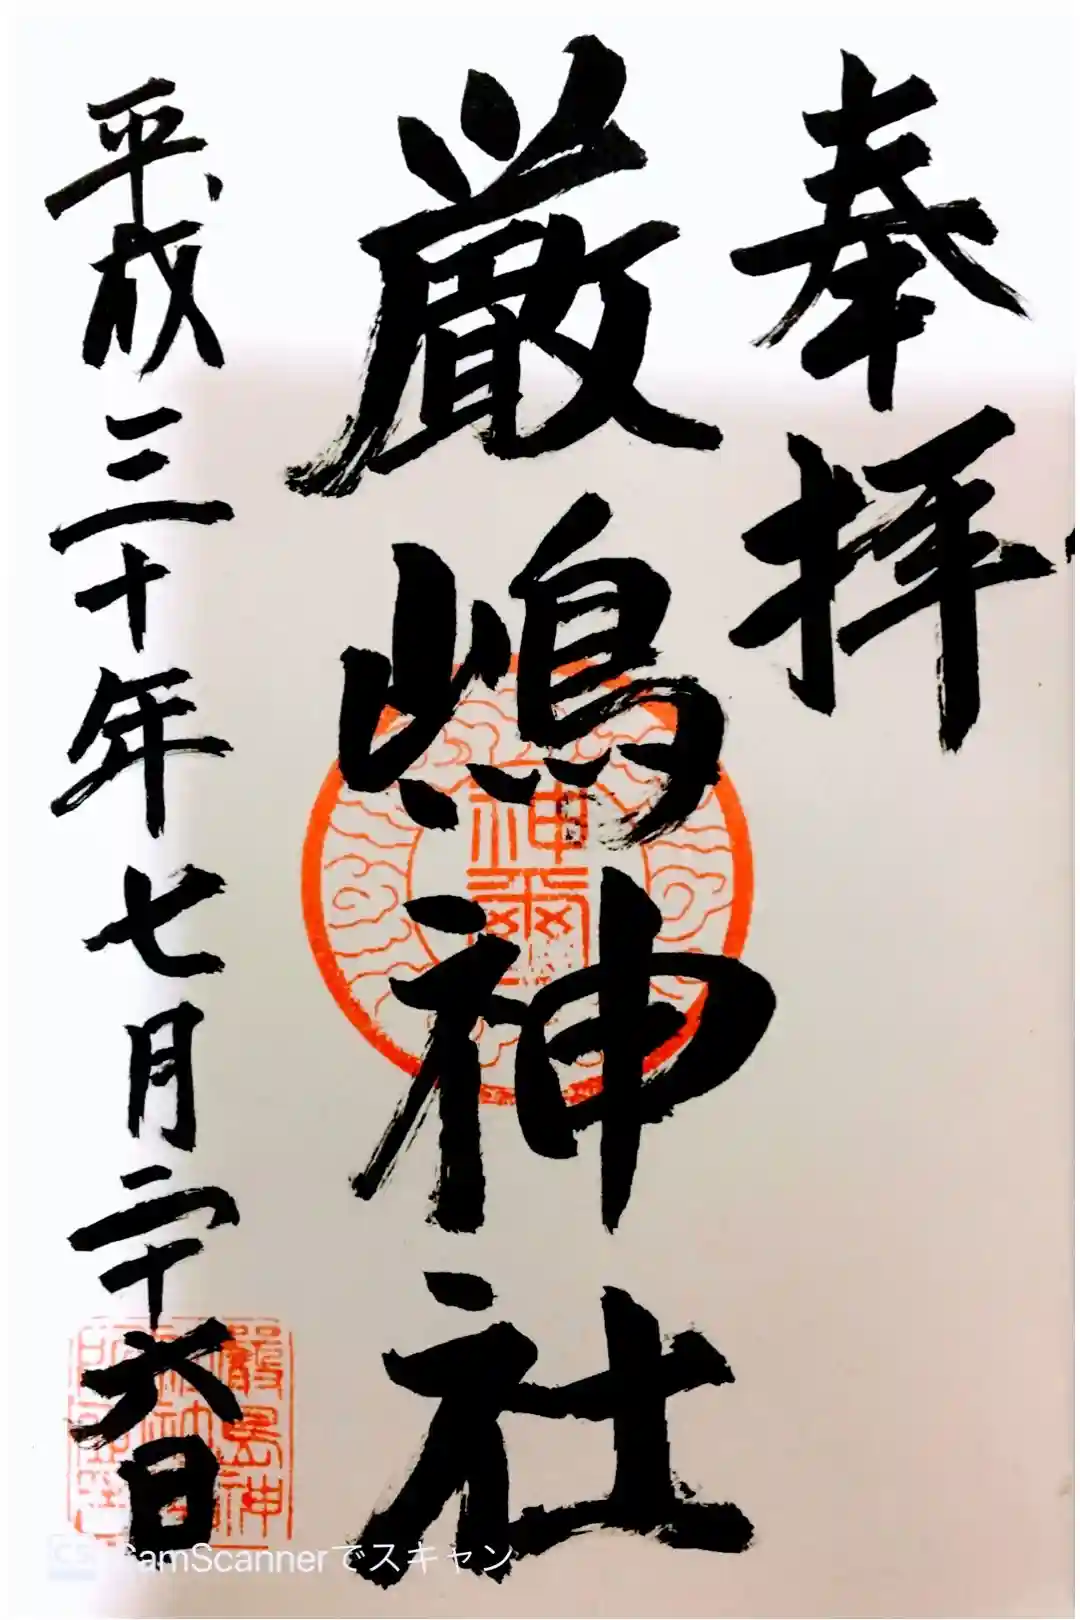 奉拝
厳嶋神社
平成三十年七月二十六日
神璽
CamScannerでスキャン